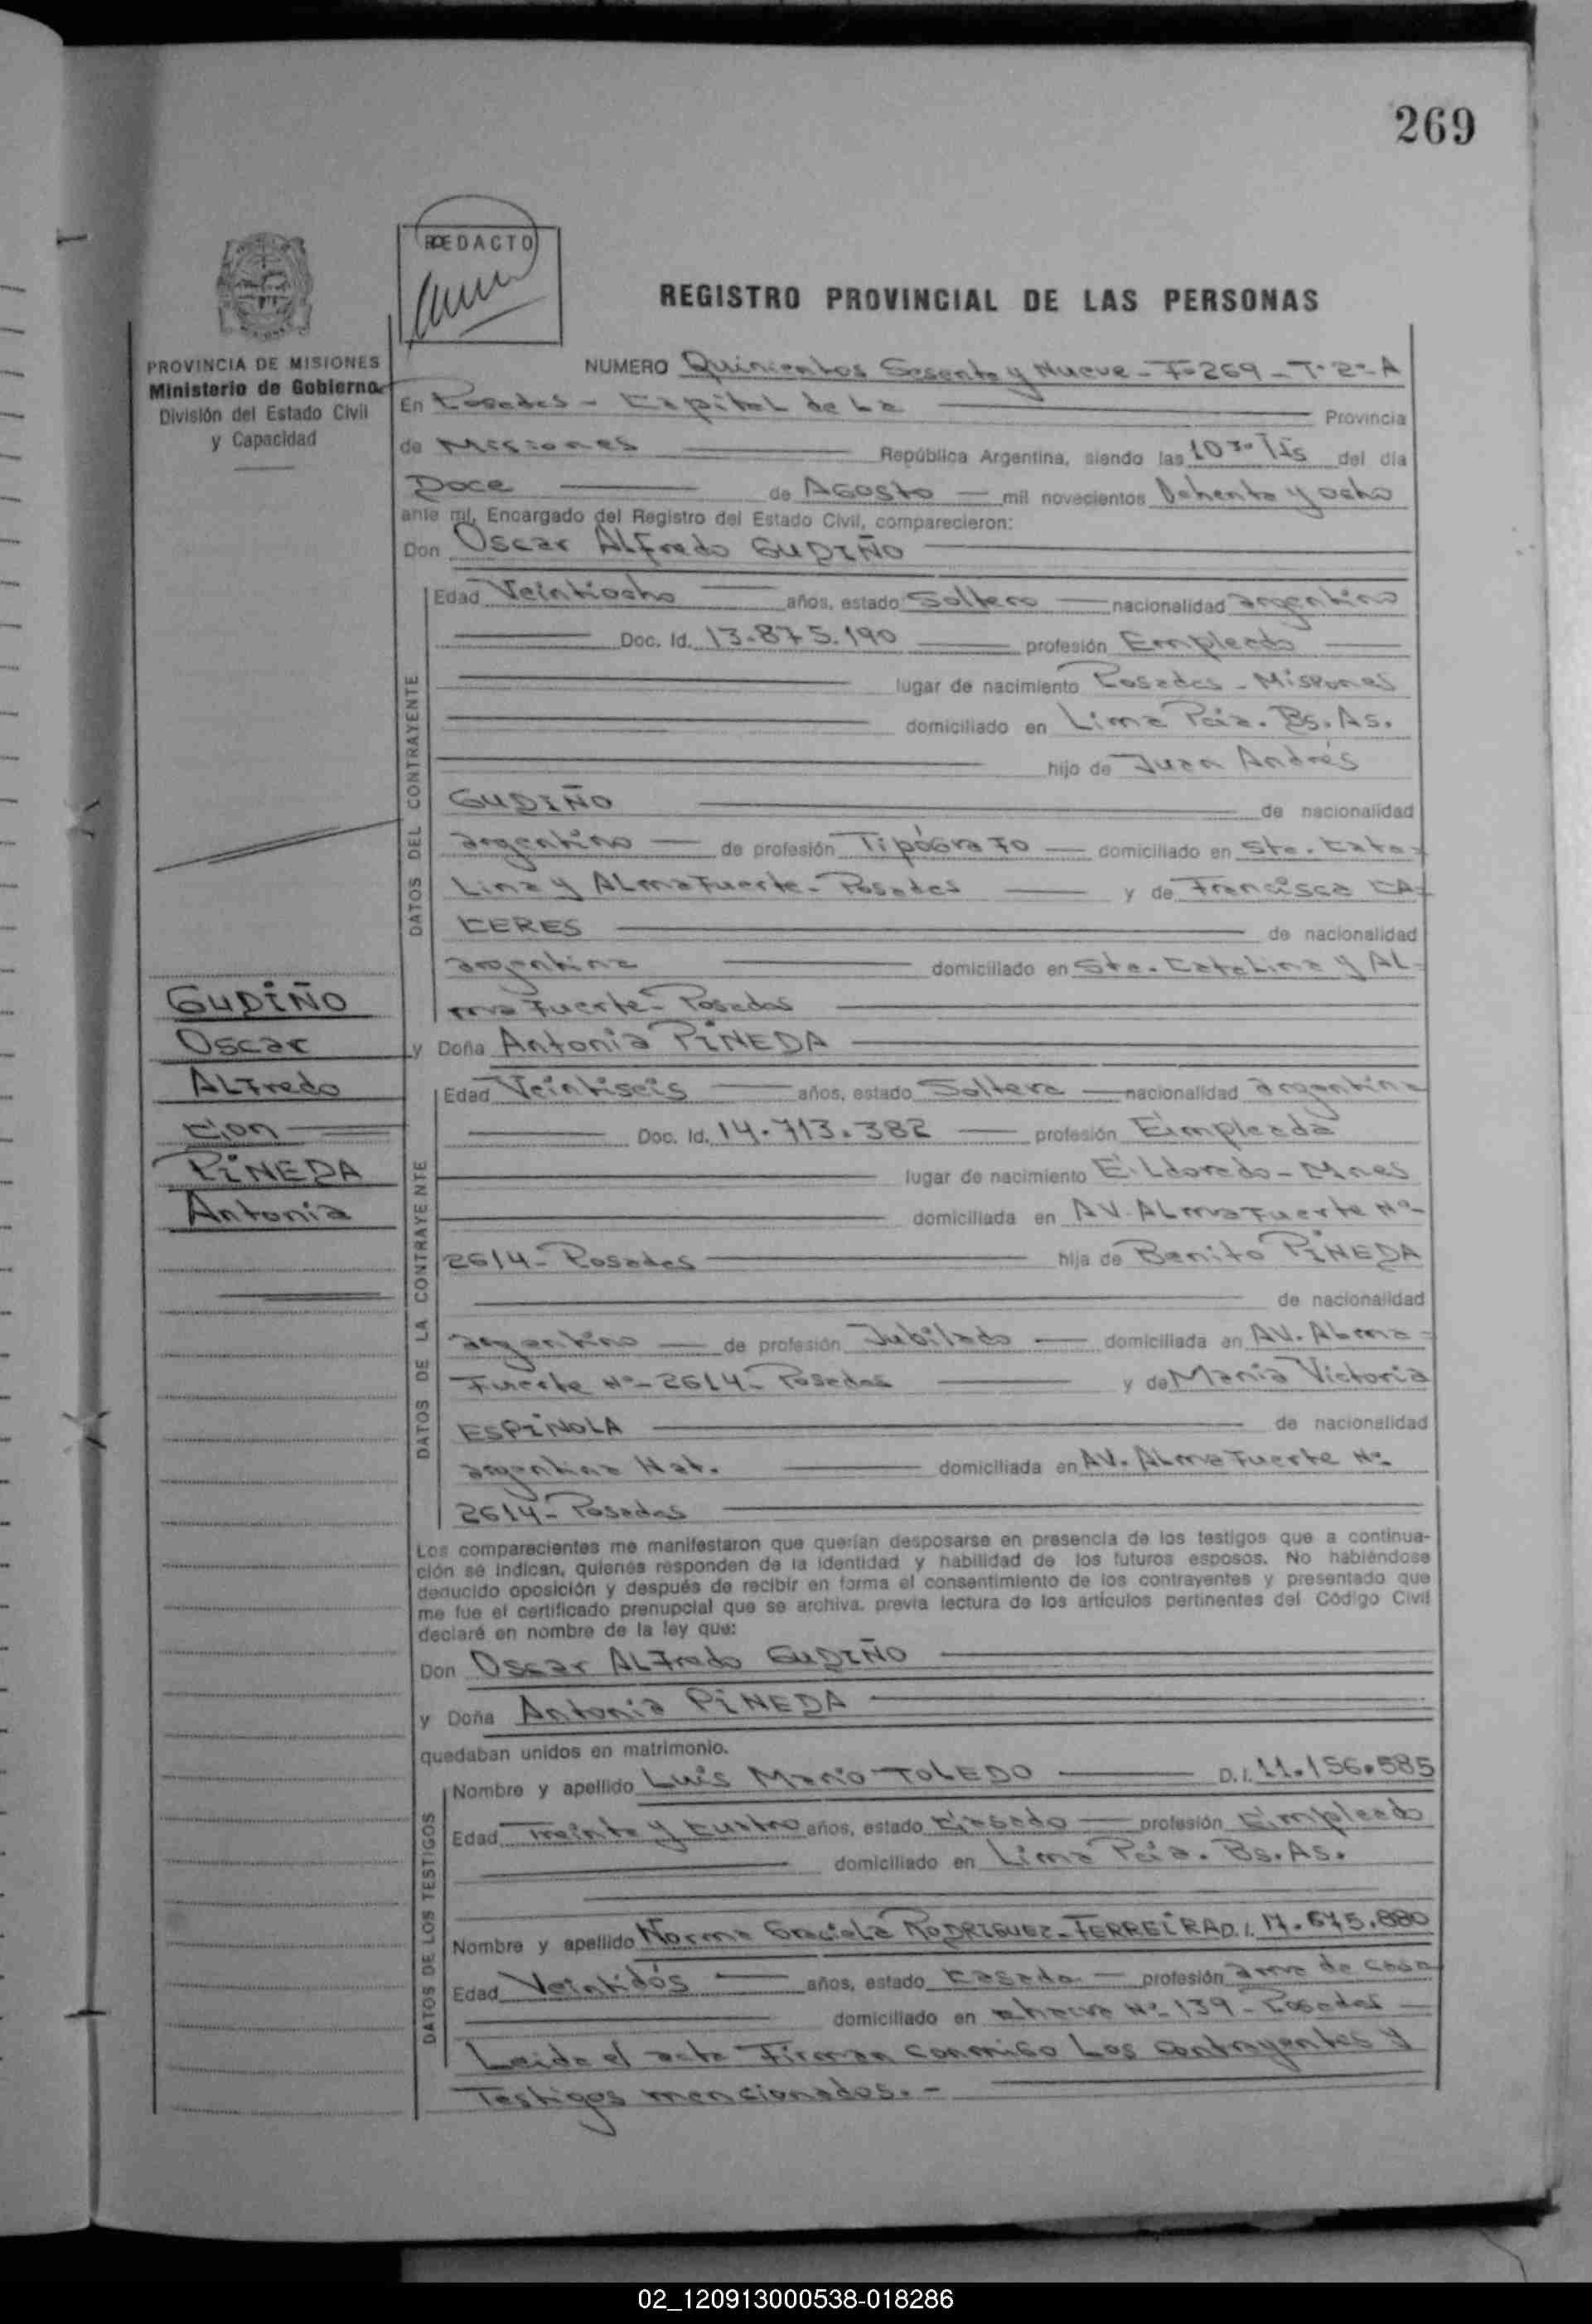 269
REDACTO
REGISTRO PROVINCIAL DE LAS PERSONAS
PROVINCIA DE MISIONES
Ministerio de Gobierno
División del Estado Civil
y Capacidad
NUMERO Quinientos Sesenta y Nueve - F=269 - T-2º-A
En Posadas - Capital de La Provincia
de Misiones República Argentina, siendo las 10 30 Hs del día
Doce de Agosto mil novecientos Ochenta y ocho
ante mí, Encargado del Registro del Estado Civil, comparecieron:
Don Oscar Alfredo GUDIÑO
DATOS DEL CONTRAYENTE
Edad Veintiocho años, estado Soltero nacionalidad argentino
Doc. Id. 13.875.190 profesión Empleado
lugar de nacimiento Posadas - Misiones
domiciliado en Lima Pcia. Bs. As.
hijo de Juan Andrés
GUDIÑO de nacionalidad
argentino de profesión Tipógrafo domiciliado en Sta. Cata=
Lina y ALmaFuerte - Posadas y de Francisca CA=
CERES de nacionalidad
argentina domiciliado en Sta. Catalina y AL=
maFuerte - Posadas
GUDIÑO
Oscar
ALFredo
con
PIÑEDA
Antonia
y Doña Antonia PIÑEDA
DATOS DE LA CONTRAYENTE
Edad Veintiseis años, estado Soltera nacionalidad argentina
Doc. Id. 14.713.382 profesión Empleada
lugar de nacimiento ELdorado - Mnes
domiciliada en AV. ALmaFuerte Nº-
2614 - Posadas hija de Benito PIÑEDA
de nacionalidad
argentino de profesión Jubilado domiciliada en AV. Alma=
Fuerte Nº- 2614 - Posadas y de María Victoria
ESPINOLA de nacionalidad
argentina Nat. domiciliada en AV. ALmaFuerte Nº-
2614 - Posadas
Los comparecientes me manifestaron que querían desposarse en presencia de los testigos que a continua-
ción se indican, quienes responden de la identidad y habilidad de los futuros esposos. No habiéndose
deducido oposición y después de recibir en forma el consentimiento de los contrayentes y presentado que
me fue el certificado prenupcial que se archiva, previa lectura de los artículos pertinentes del Código Civil
declaré en nombre de la ley que:
Don Oscar ALFredo GUDIÑO
y Doña Antonia PIÑEDA
quedaban unidos en matrimonio.
DATOS DE LOS TESTIGOS
Nombre y apellido Luis Mario TOLEDO D.I. 11.156.585
Edad Treinta y Cuatro años, estado Casado profesión Empleado
domiciliado en Lima Pcia. Bs. As.
Nombre y apellido Norma Graciela RODRIGUEZ-FERREIRA D.I. 17.675.880
Edad Veintidós años, estado Casada profesión ama de casa
domiciliado en Nº- 139 - Posadas
Leida el acta Firman conmigo Los contrayentes y
Testigos mencionados. -
02_120913000538-018286